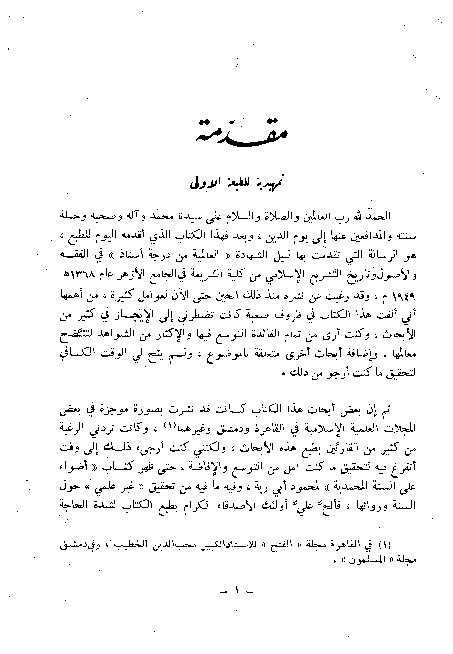 مقدّمة
تمهيدية للطبعة الاولى
الحمد لله رب العالمين والصلاة والسلام على سيدنا محمد وآله وصحبه وحملة
سنته والمدافعين عنها إلى يوم الدين ، وبعد فهذا الكتاب الذي أقدمه اليوم للطبع ،
هو الرسالة التي تقدمت بها لنيل الشهادة « العالمية من درجة أستاذ » في الفقـه
والأصول وتاريخ التشريع الإسلامي من كلية الشريعة في الجامع الأزهر عام ١٣٦٨ ه
١٩٤٩ م ، وقد رغبت عن نشره منذ ذلك الحين حتى الآن لعوامل كثيرة ، من أهمها
أني ألفت هذا الكتاب في ظروف صعبة كانت تضطرني إلى الإيجـاز في كثير من
الأبحاث ، وكنت أرى من تمام الفائدة التوسع فيها والإكثار من الشواهد لتتضح
معالمها ، وإضافة أبحاث أخرى متعلقة بالموضوع ، ولـم يتح لي الوقت الكـافي
لتحقيق ما كنت أرجو من ذلك .
ثم إن بعض أبحاث هذا الكتاب كـانت قد نشرت بصورة موجزة في بعض
المجلات العلمية الإسلامية في القاهرة ودمشق وغيرهما(١) ، وكانت تردني الرغبة
من كثير من القارئين بطبع هذه الأبحاث ، ولكنني كنت أرجىء ذلـك إلى وقت
أتفرغ فيه لتحقيق ما كنت آمل من التوسع والإفاضة ، حتى ظهر كتـاب « أضواء
على السنة المحمدية » لمحمود أبي رية ، وفيه ما فيه من تحقيق « غير علمي » حول
السنة ورواتها ، فألح عليّ أولئك الأصدقاء الكرام بطبع الكتاب لشدة الحاجة
(١) في القاهرة مجلة « الفتح » للاستاذ الكبير محب الدين الخطيب ، وفي دمشق
مجلة « المسلمون » .
– ١ –